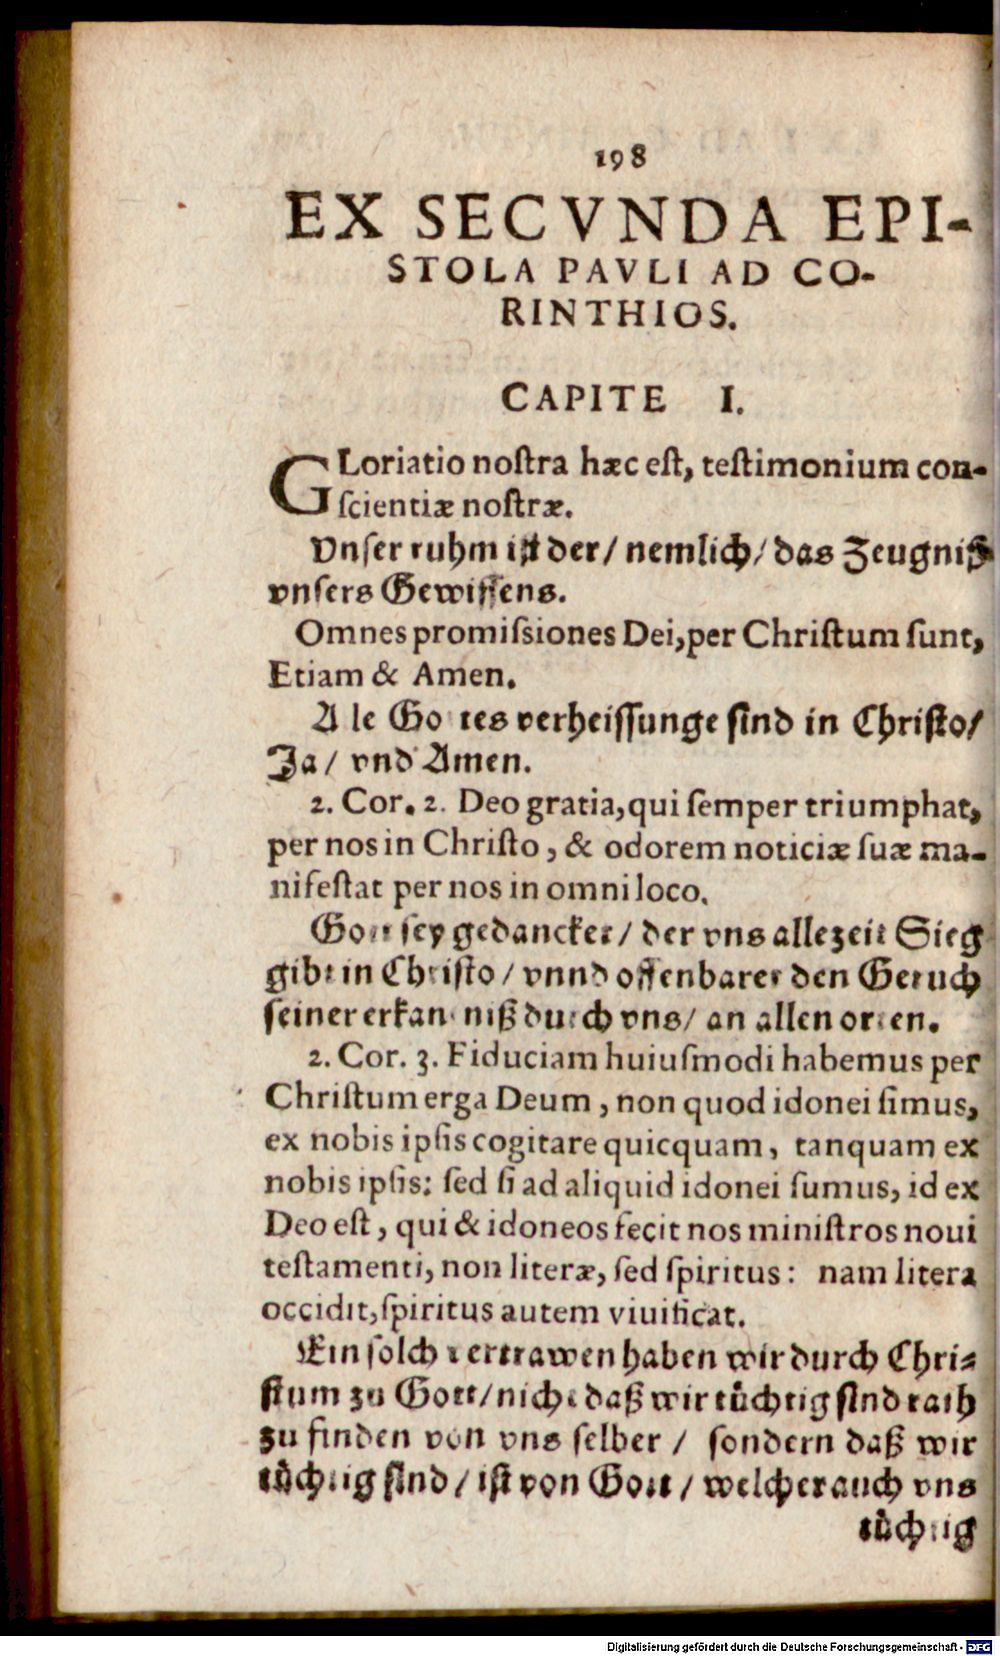 198
EX SECVNDA EPI-
STOLA PAVLI AD CO-
RINTHIOS.
CAPITE I.
GLoriatio nostra hæc est, testimonium con-
scientiæ nostræ.
Vnser ruhm ist der/ nemlich/ das Zeugniß
vnsers Gewissens.
Omnes promissiones Dei, per Christum sunt,
Etiam & Amen.
Alle Gottes verheissunge sind in Christo/
Ja/ vnd Amen.
2. Cor. 2. Deo gratia, qui semper triumphat,
per nos in Christo, & odorem noticiæ suæ ma-
nifestat per nos in omni loco.
Gott sey gedancket/ der vns allezeit Sieg
gibt in Christo/ vnnd offenbaret den Geruch
seiner erkantniß durch vns/ an allen orten.
2. Cor. 3. Fiduciam huiusmodi habemus per
Christum erga Deum, non quod idonei simus,
ex nobis ipsis cogitare quicquam, tanquam ex
nobis ipsis: sed si ad aliquid idonei sumus, id ex
Deo est, qui & idoneos fecit nos ministros noui
testamenti, non literæ, sed spiritus: nam litera
occidit, spiritus autem viuificat.
Ein solch vertrawen haben wir durch Chri-
stum zu Gott/ nicht daß wir tüchtig sind rath
zu finden von vns selber/ sondern daß wir
tüchtig sind/ ist von Gott/ welcher auch vns
tüchtig
Digitalisierung gefördert durch die Deutsche Forschungsgemeinschaft - DFG